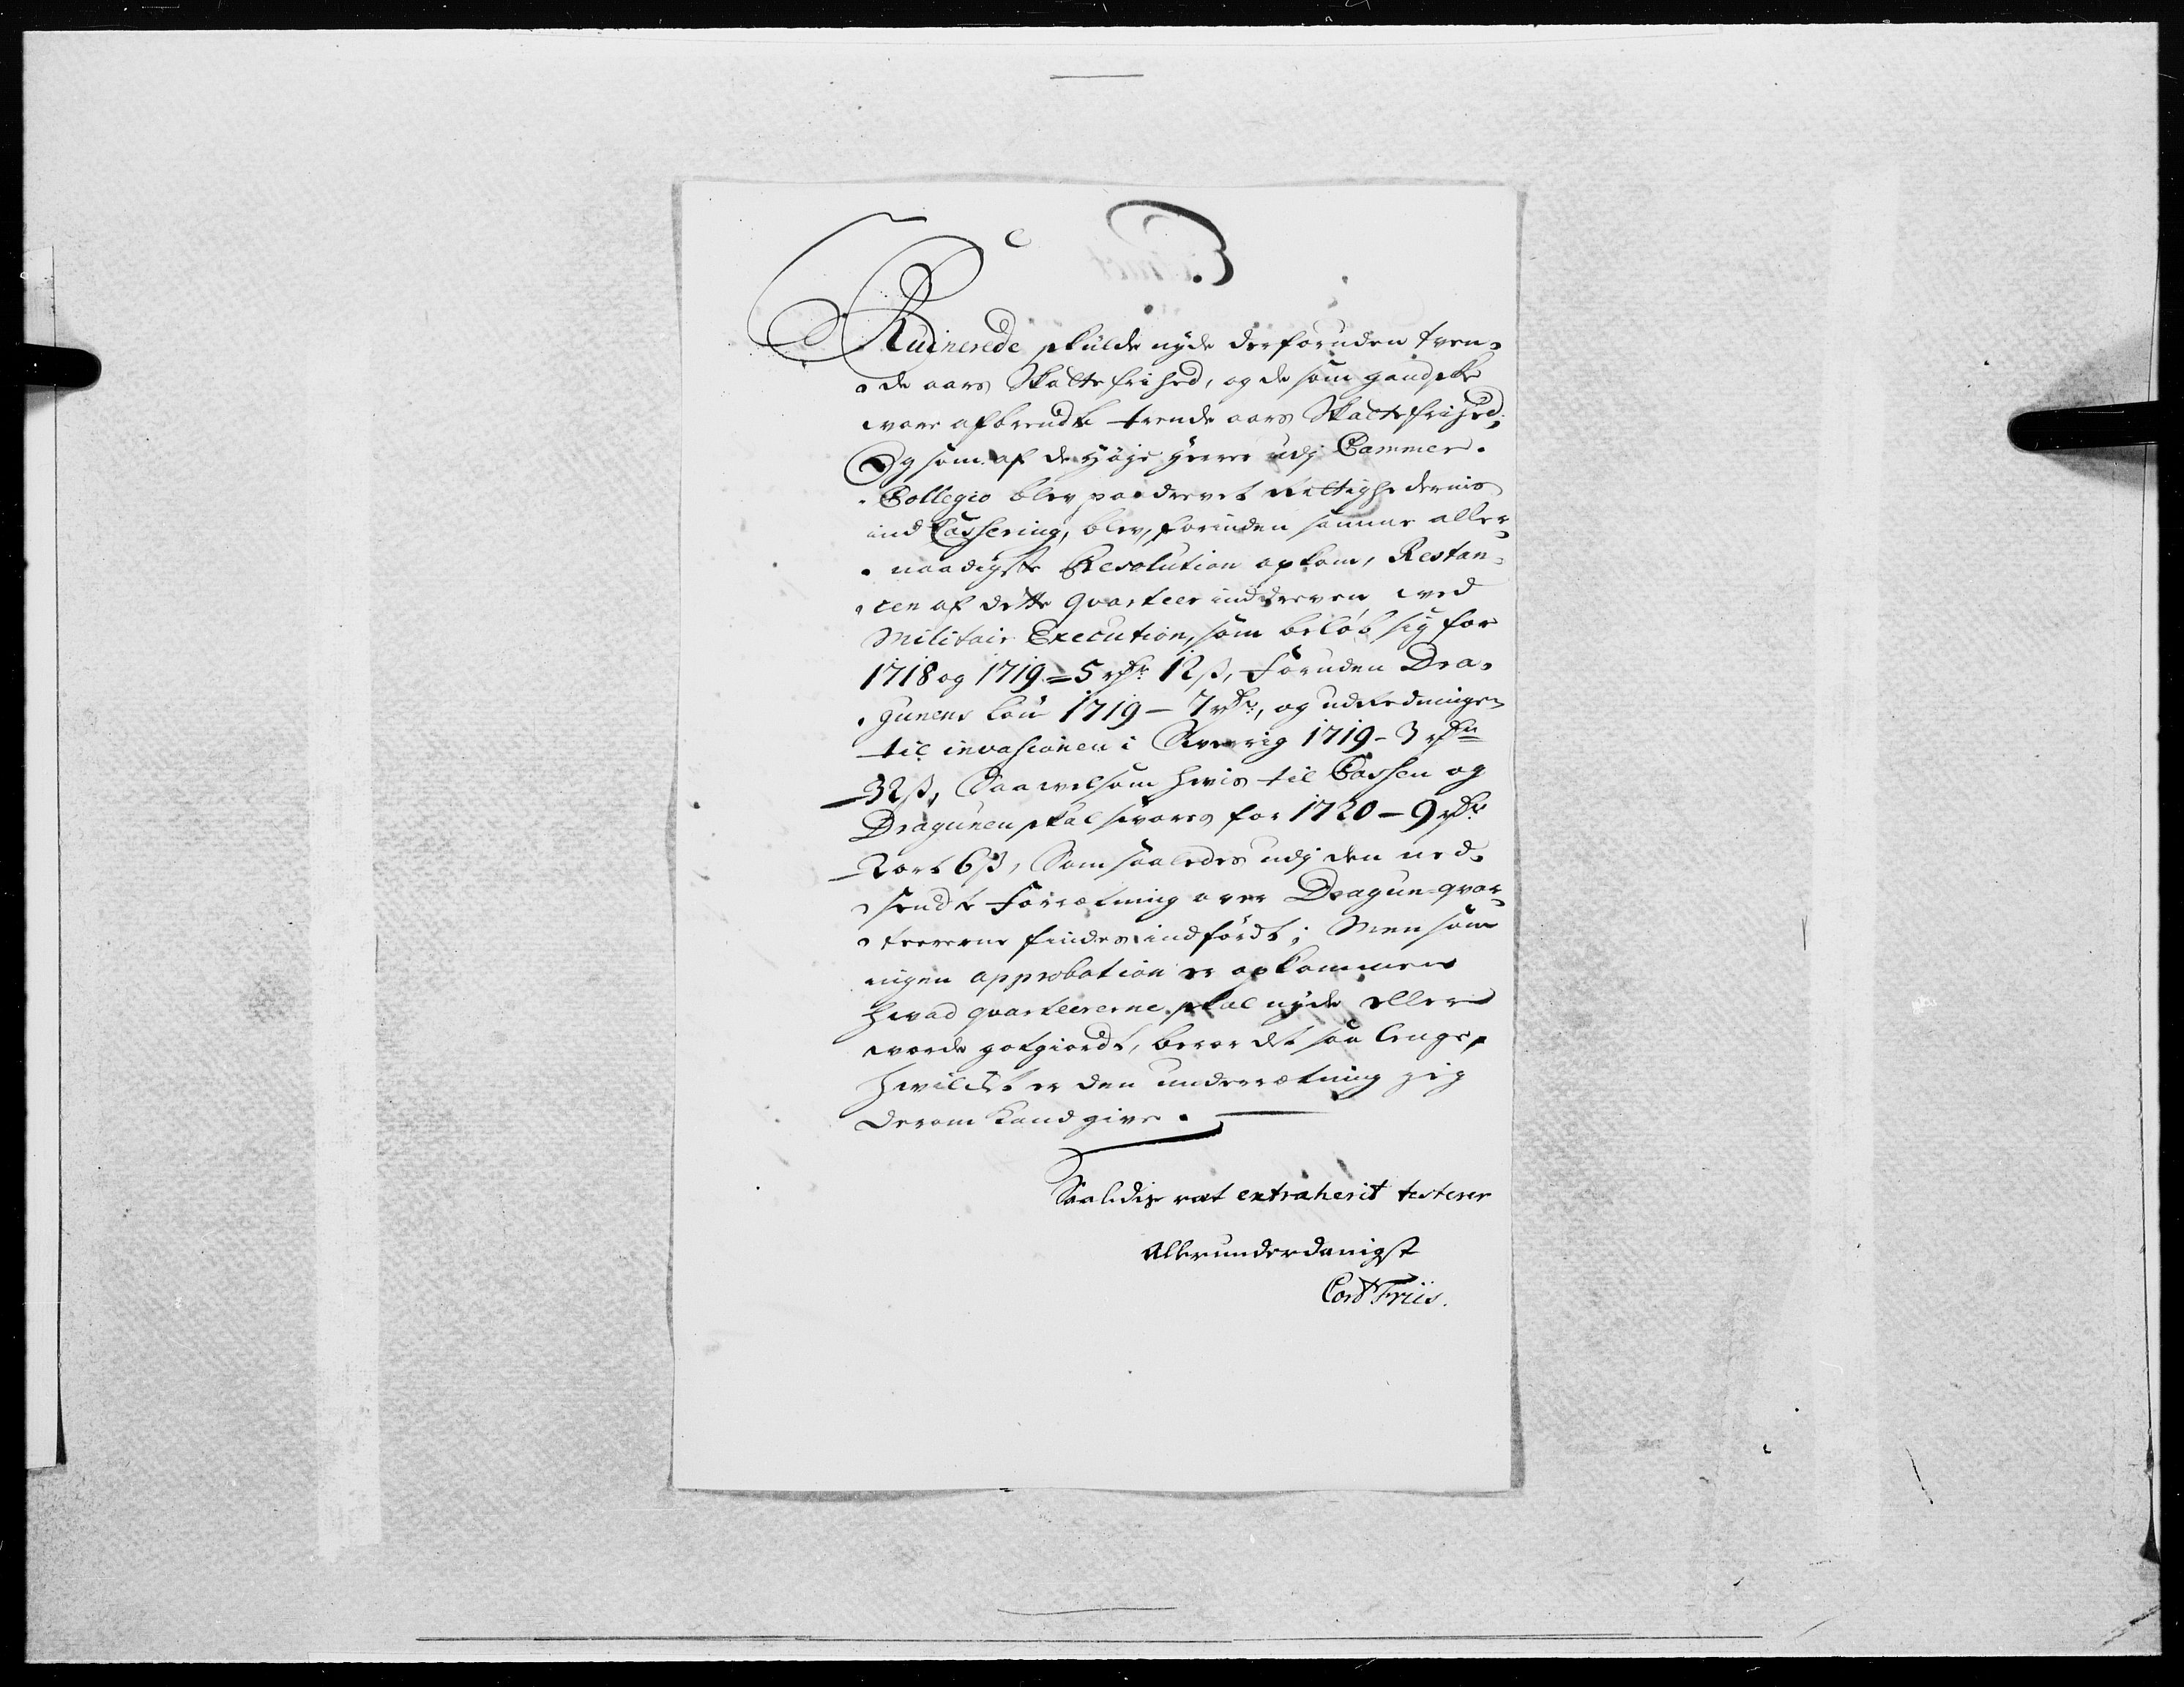 Ruinerede skulde nyde derforuden tven-
de aars Skatte frihed, og de som gandske
vare afbrendte trende aars Skattefrihed;
Og som af de Høje Herrer udj Cammer-
Collegio blev paadrevet Rettighedernis
ind Cassering, blev, forinden samme aller-
naadigste Resolution opkom, Restan-
cen af dette Qvarteer inddreven ved
Militair Execution, som beløb sig for
1718 og 1719 = 5 rdr 12 ß, Foruden Dra-
gunens Løn 1719 - 7 rdr, og udredningen
til invasionen i Sverrig 1719 - 3 rdr
32 ß, Saavelsom hvis til Cassen og
Dragunen skal svares for 1720 - 9 rdr
2 ort 6 ß, Som saaledes udj den ned-
sendte Forretning over Dragun-qvar-
teererne findes indført; Men som
ingen approbation er opkommen
hvad qvarteererne skal nyde eller
vorde gotgiordt, beror det saa lenge,
hvilket er den underretning jeg
derom kand give.
Saaledis ret extraherit testerer
Allerunderdanigst
Cort Friis.